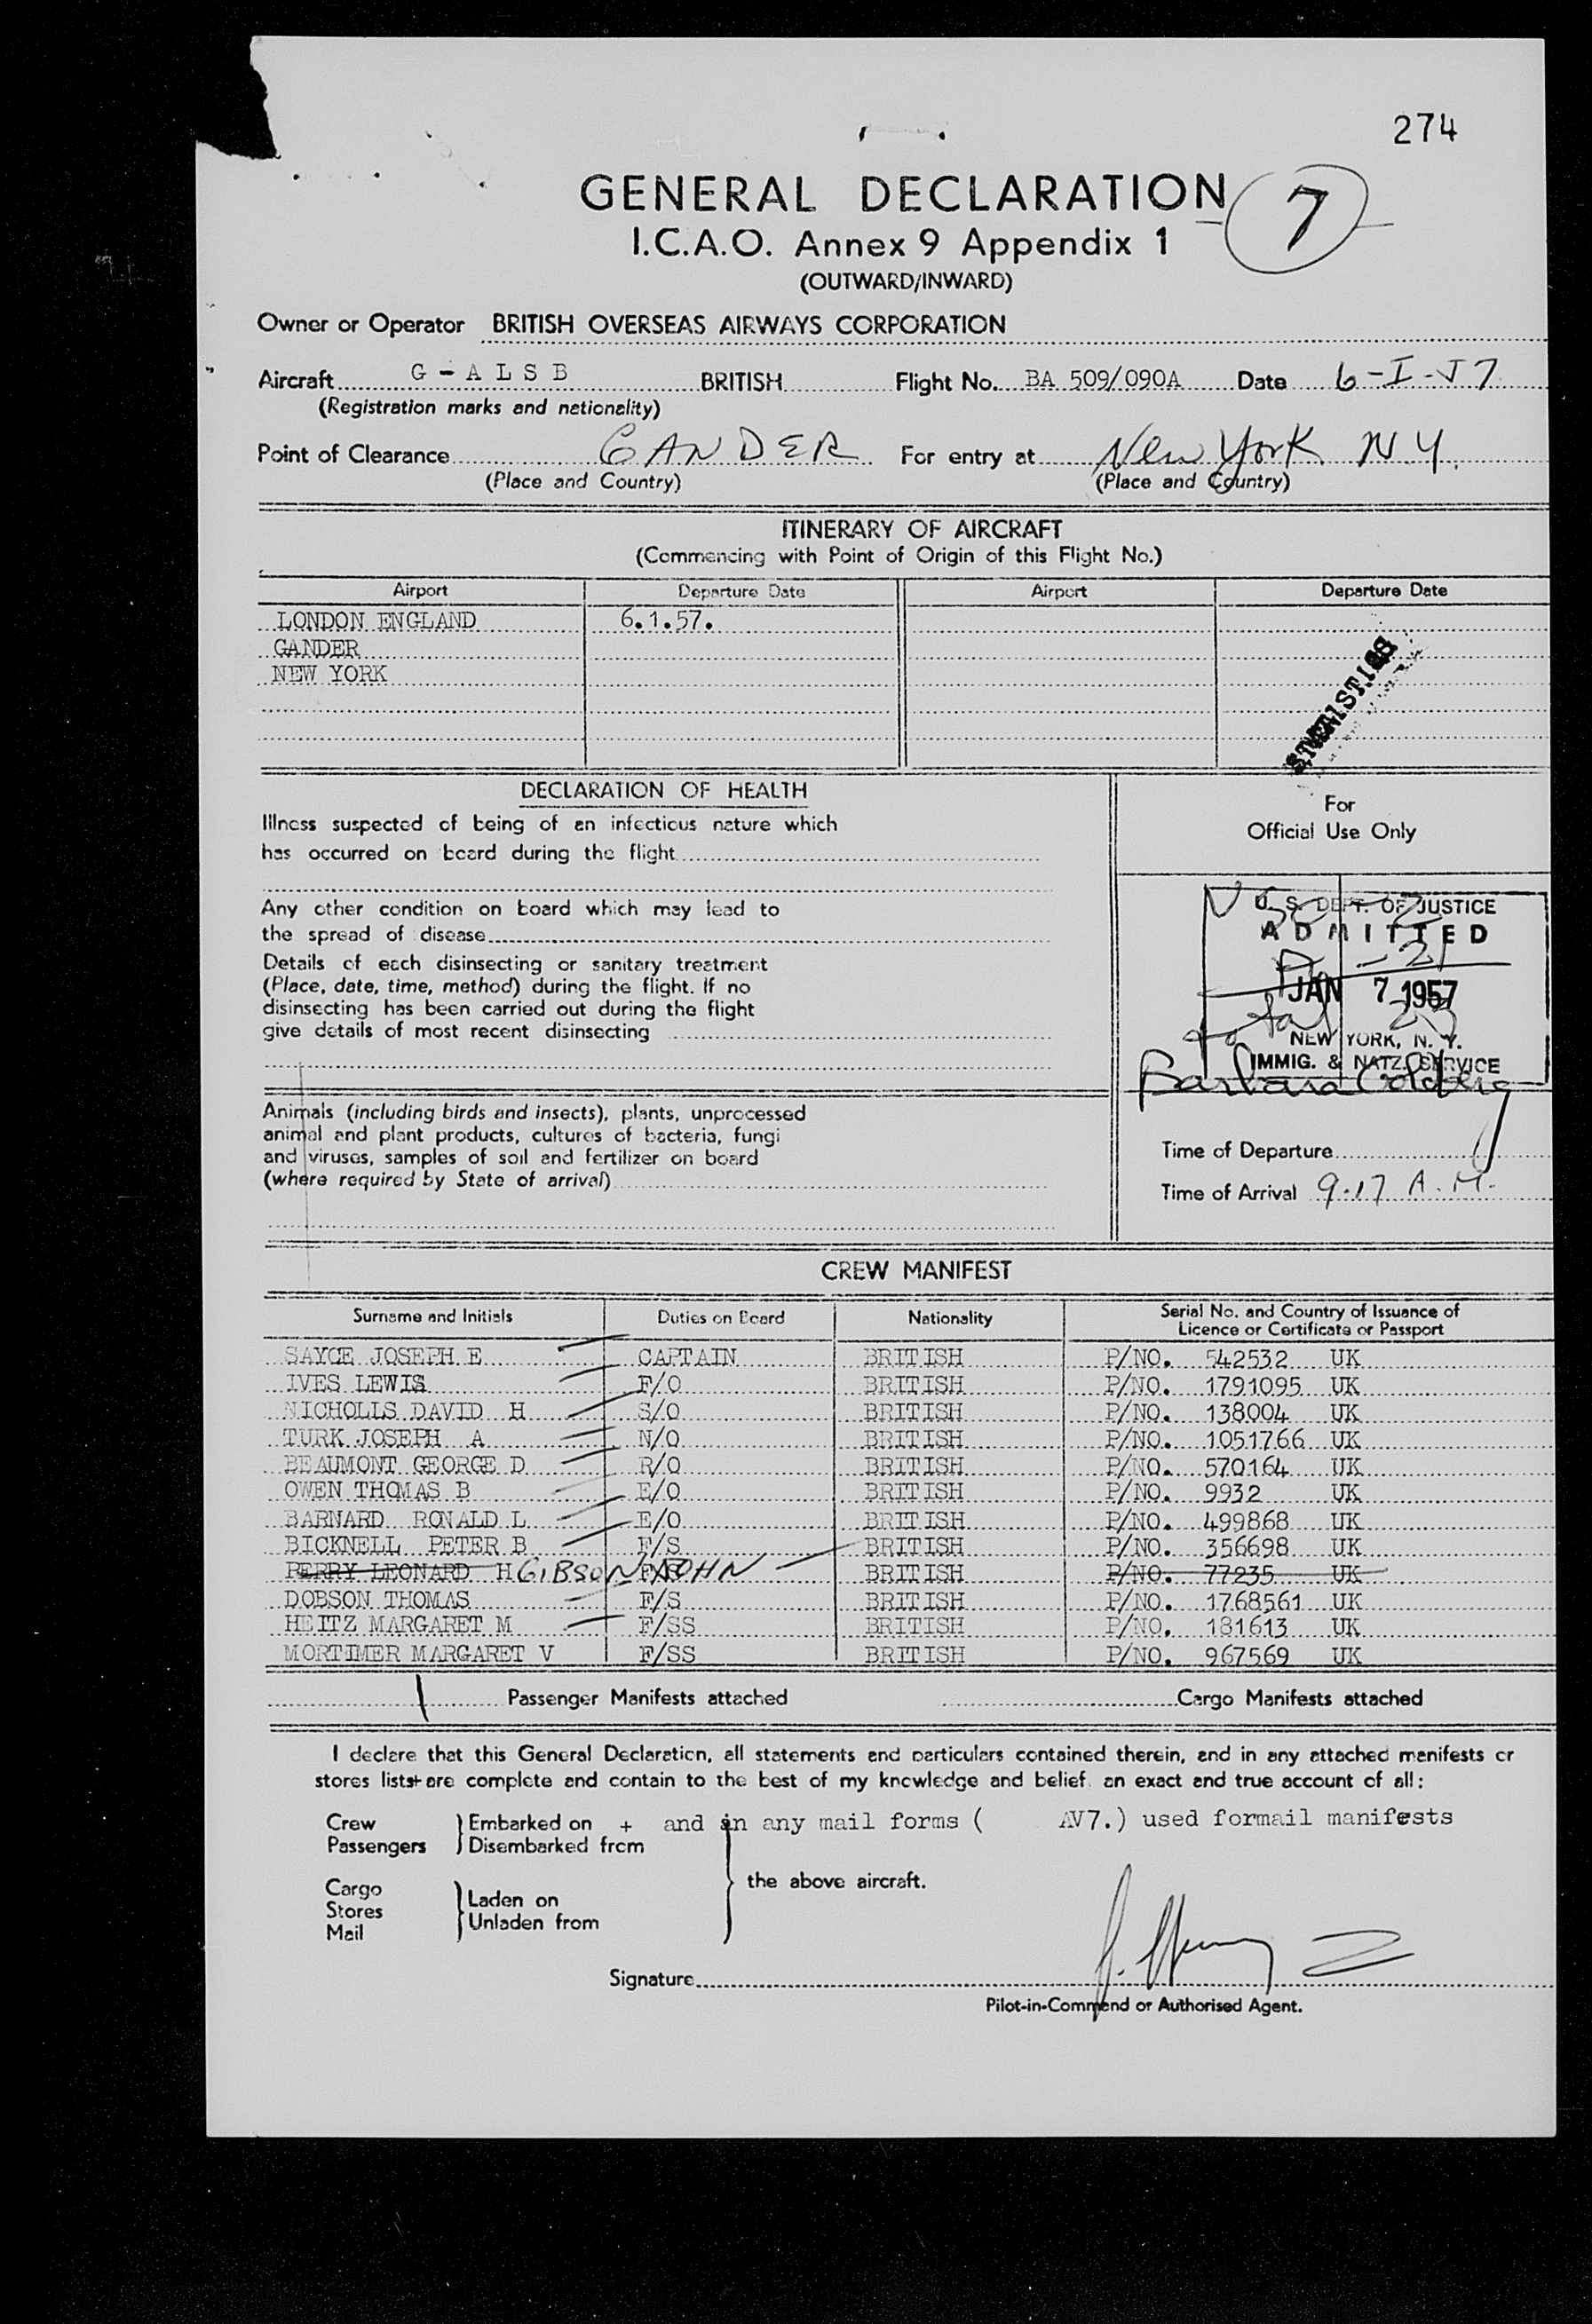 274
GENERAL DECLARATION 7
I.C.A.O. Annex 9 Appendix 1
(OUTWARD/INWARD)
Owner or Operator BRITISH OVERSEAS AIRWAYS CORPORATION
Aircraft G - A L S B BRITISH Flight No. BA 509/090A Date 6-I-57
(Registration marks and nationality)
Point of Clearance GANDER For entry at New York N.Y.
(Place and Country) (Place and Country)
ITINERARY OF AIRCRAFT
(Commencing with Point of Origin of this Flight No.)
Airport Departure Date Airport Departure Date
LONDON ENGLAND 6.1.57.
GANDER
NEW YORK
DECLARATION OF HEALTH
Illness suspected of being of an infectious nature which
has occurred on board during the flight
Any other condition on board which may lead to
the spread of disease
Details of each disinsecting or sanitary treatment
(Place, date, time, method) during the flight. If no
disinsecting has been carried out during the flight
give details of most recent disinsecting
Animals (including birds and insects), plants, unprocessed
animal and plant products, cultures of bacteria, fungi
and viruses, samples of soil and fertilizer on board
(where required by State of arrival)
For
Official Use Only
U. S. DEPT. OF JUSTICE
ADMITTED
JAN 7 1957
total
NEW YORK, N. Y.
IMMIG. & NATZ. SERVICE
Barbara
Time of Departure
Time of Arrival 9.17 A.M.
CREW MANIFEST
Surname and Initials Duties on Board Nationality Serial No. and Country of Issuance of
Licence or Certificate or Passport
SAYCE JOSEPH E CAPTAIN BRITISH P/NO. 542532 UK
IVES LEWIS F/O BRITISH P/NO. 1791095 UK
NICHOLLS DAVID H S/O BRITISH P/NO. 138004 UK
TURK JOSEPH A N/O BRITISH P/NO. 1051766 UK
BEAUMONT GEORGE D R/O BRITISH P/NO. 570164 UK
OWEN THOMAS B E/O BRITISH P/NO. 9932 UK
BARNARD RONALD L E/O BRITISH P/NO. 499868 UK
BICKNELL PETER B F/S BRITISH P/NO. 356698 UK
PERRY LEONARD H GIBSON JOHN BRITISH P/NO. 77235 UK
DOBSON THOMAS F/S BRITISH P/NO. 1768561 UK
HEITZ MARGARET M F/SS BRITISH P/NO. 181613 UK
MORTIMER MARGARET V F/SS BRITISH P/NO. 967569 UK
1 Passenger Manifests attached Cargo Manifests attached
I declare that this General Declaration, all statements and particulars contained therein, and in any attached manifests or
stores lists+are complete and contain to the best of my knowledge and belief an exact and true account of all:
Crew Embarked on + and in any mail forms ( AV7.) used formail manifests
Passengers Disembarked from
the above aircraft.
Cargo
Stores Laden on
Mail Unladen from
Signature
Pilot-in-Command or Authorised Agent.